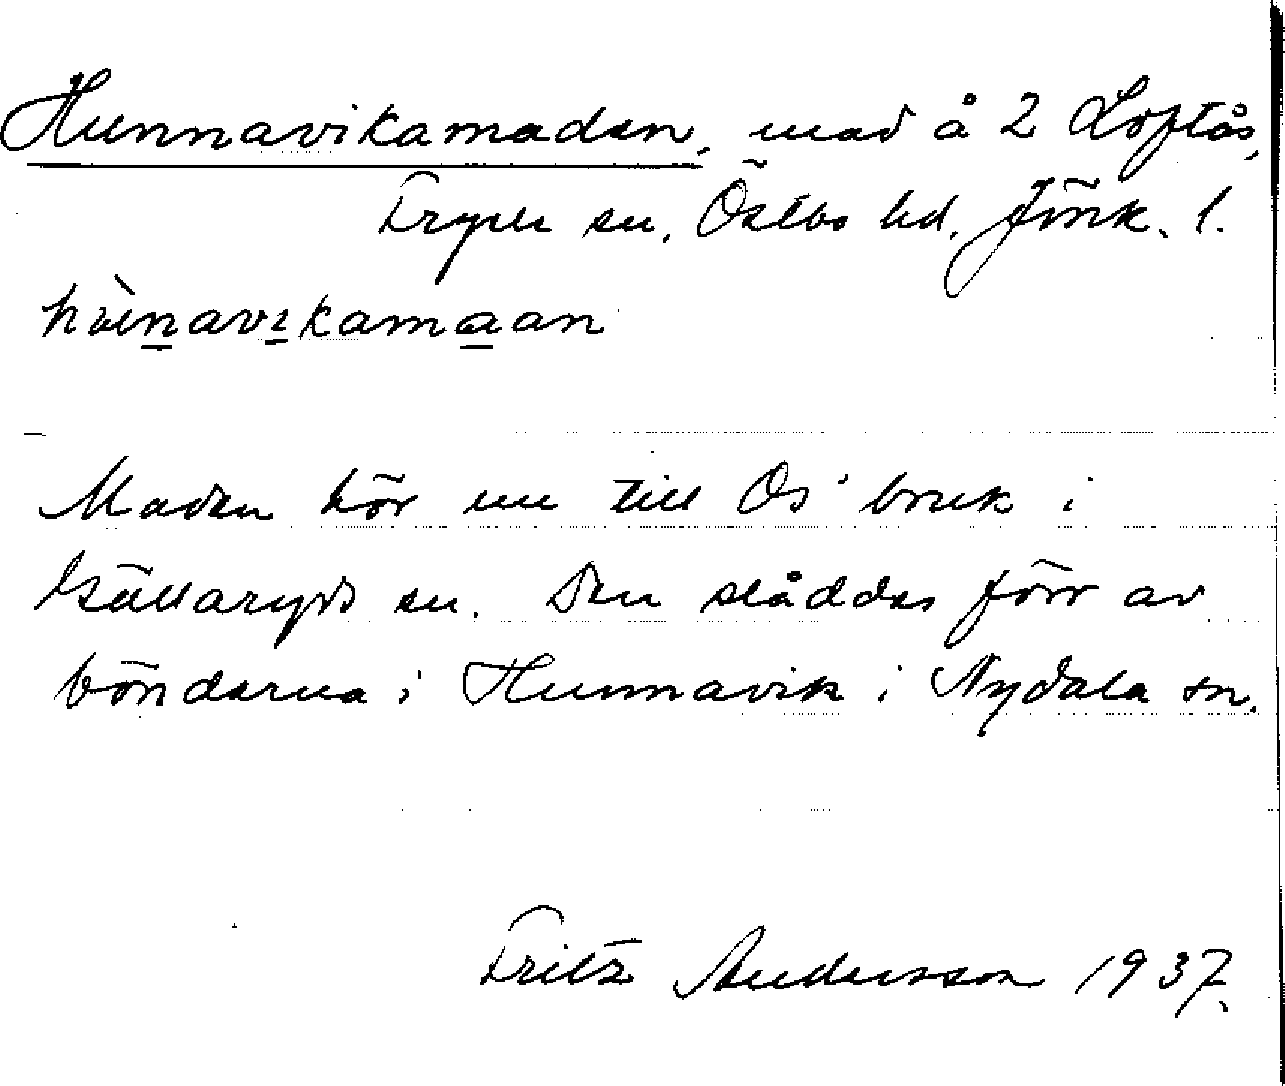 Hunnavikamaden, mad å 2 Loftås,
Fryele sn, Östbo hd, Jönk. l.
Maden hör nu till Os' bruk i
Gällaryds sn. Den slåddes förr av
bönderna i Hunnavik i Nydala sn.
Fritz Andersson 1937.